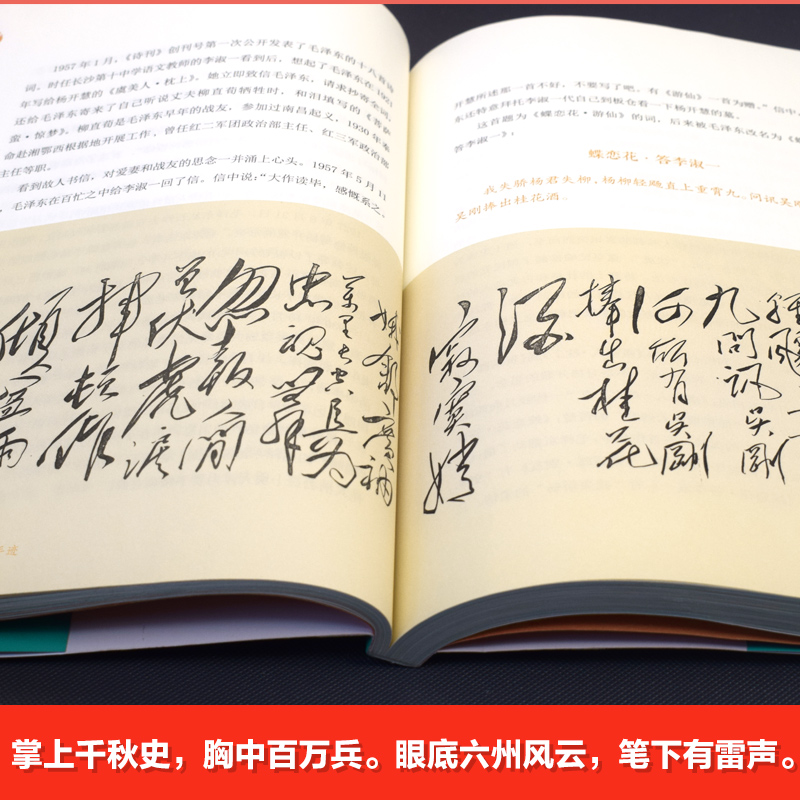 1957年1月，《诗刊》创刊号第一次公开发表了毛泽东的十八首诗
词。时任长沙第十中学语文教师的李淑一看到后，想起了毛泽东在1921
年写给杨开慧的《虞美人·枕上》。她立即致信毛泽东，请求抄寄全词，
还给毛泽东寄来了自己听说丈夫柳直荀牺牲时，和泪填写的《菩萨
蛮·惊梦》。柳直荀是毛泽东早年的战友，参加过南昌起义，1930年奉
命赴湘鄂西根据地开展工作，曾任红二军团政治部主任、红三军政治部
主任等职。
看到故人书信，对爱妻和战友的思念一并涌上心头。1957年5月11
，毛泽东在百忙之中给李淑一回了信。信中说：“大作读毕，感慨系之。
开慧所述那一首不好，不要写了吧，有《游仙》一首为赠。”信中
东还特意拜托李淑一代自己到板仓看一下杨开慧的墓。
这首题为《蝶恋花·游仙》的词，后来被毛泽东改名为《
答李淑一》：
蝶恋花·答李淑一
我失骄杨君失柳，杨柳轻飏直上重霄九。问讯吴
吴刚捧出桂花酒。
九问讯吴刚
何所有吴刚
捧出桂花
酒
寂寞嫦
娥舒广袖
万里长空且为
忠魂舞
忽报人间
曾伏虎泪
飞作
倾盆雨
掌上千秋史，胸中百万兵。眼底六州风云，笔下有雷声。